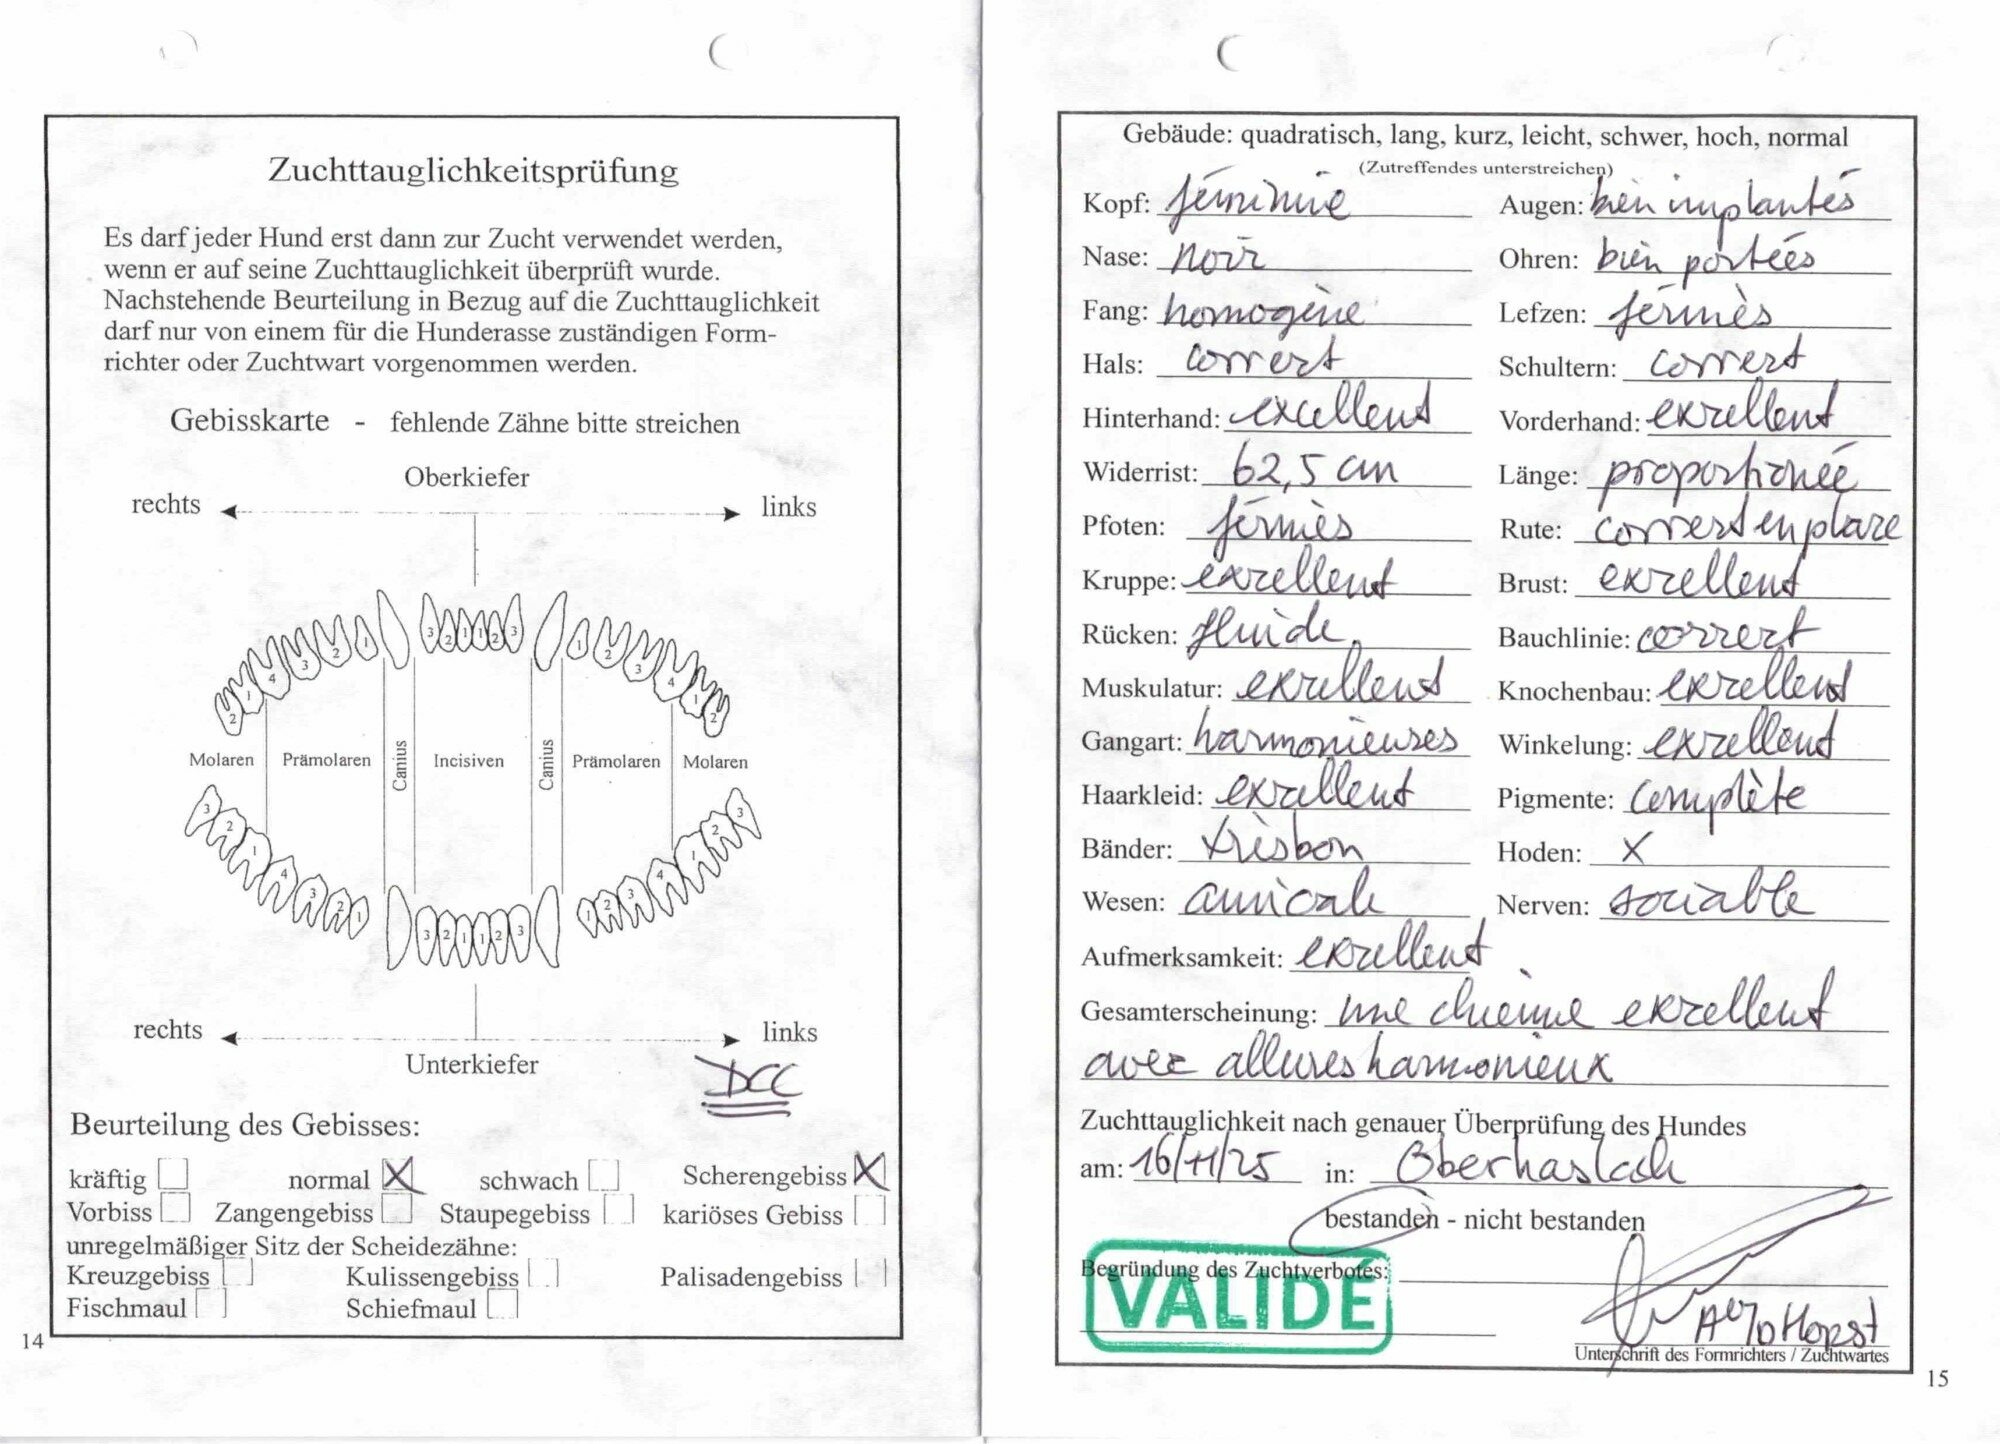 Zuchttauglichkeitsprüfung
Es darf jeder Hund erst dann zur Zucht verwendet werden,
wenn er auf seine Zuchttauglichkeit überprüft wurde.
Nachstehende Beurteilung in Bezug auf die Zuchttauglichkeit
darf nur von einem für die Hunderasse zuständigen Form-
richter oder Zuchtwart vorgenommen werden.
Gebisskarte - fehlende Zähne bitte streichen
Oberkiefer
rechts links
3 2 1 1 2 3
2 1 4 3 2 1 1 2 3 4 1 2
Molaren Prämolaren Canius Incisiven Canius Prämolaren Molaren
3 2 1 4 3 2 1 1 2 3 4 1 2 3
3 2 1 1 2 3
rechts links
Unterkiefer
DCC
Beurteilung des Gebisses:
kräftig normal X schwach Scherengebiss X
Vorbiss Zangengebiss Staupegebiss kariöses Gebiss
unregelmäßiger Sitz der Scheidezähne:
Kreuzgebiss Kulissengebiss Palisadengebiss
Fischmaul Schiefmaul
14
Gebäude: quadratisch, lang, kurz, leicht, schwer, hoch, normal
(Zutreffendes unterstreichen)
Kopf: féminine Augen: bien implantés
Nase: noir Ohren: bien portées
Fang: homogène Lefzen: fermès
Hals: correct Schultern: correct
Hinterhand: excellent Vorderhand: excellent
Widerrist: 62,5 cm Länge: proportionée
Pfoten: fermès Rute: correct en place
Kruppe: excellent Brust: excellent
Rücken: fluide Bauchlinie: correct
Muskulatur: excellent Knochenbau: excellent
Gangart: harmonieuses Winkelung: excellent
Haarkleid: excellent Pigmente: complète
Bänder: très bon Hoden: X
Wesen: amicale Nerven: sociable
Aufmerksamkeit: excellent
Gesamterscheinung: une chienne excellent
avec allures harmonieux
Zuchttauglichkeit nach genauer Überprüfung des Hundes
am: 16/11/25 in: Oberhaslach
bestanden - nicht bestanden
Begründung des Zuchtverbotes:
VALIDÉ
Horst
Unterschrift des Formrichters / Zuchtwartes
15